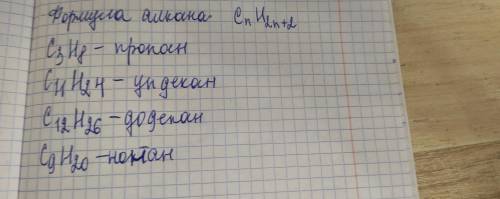 Формула алкана CnH2n+2
C3H8 - пропан
C11H24 - ундекан
C12H26 - додекан
C9H20 - нонан